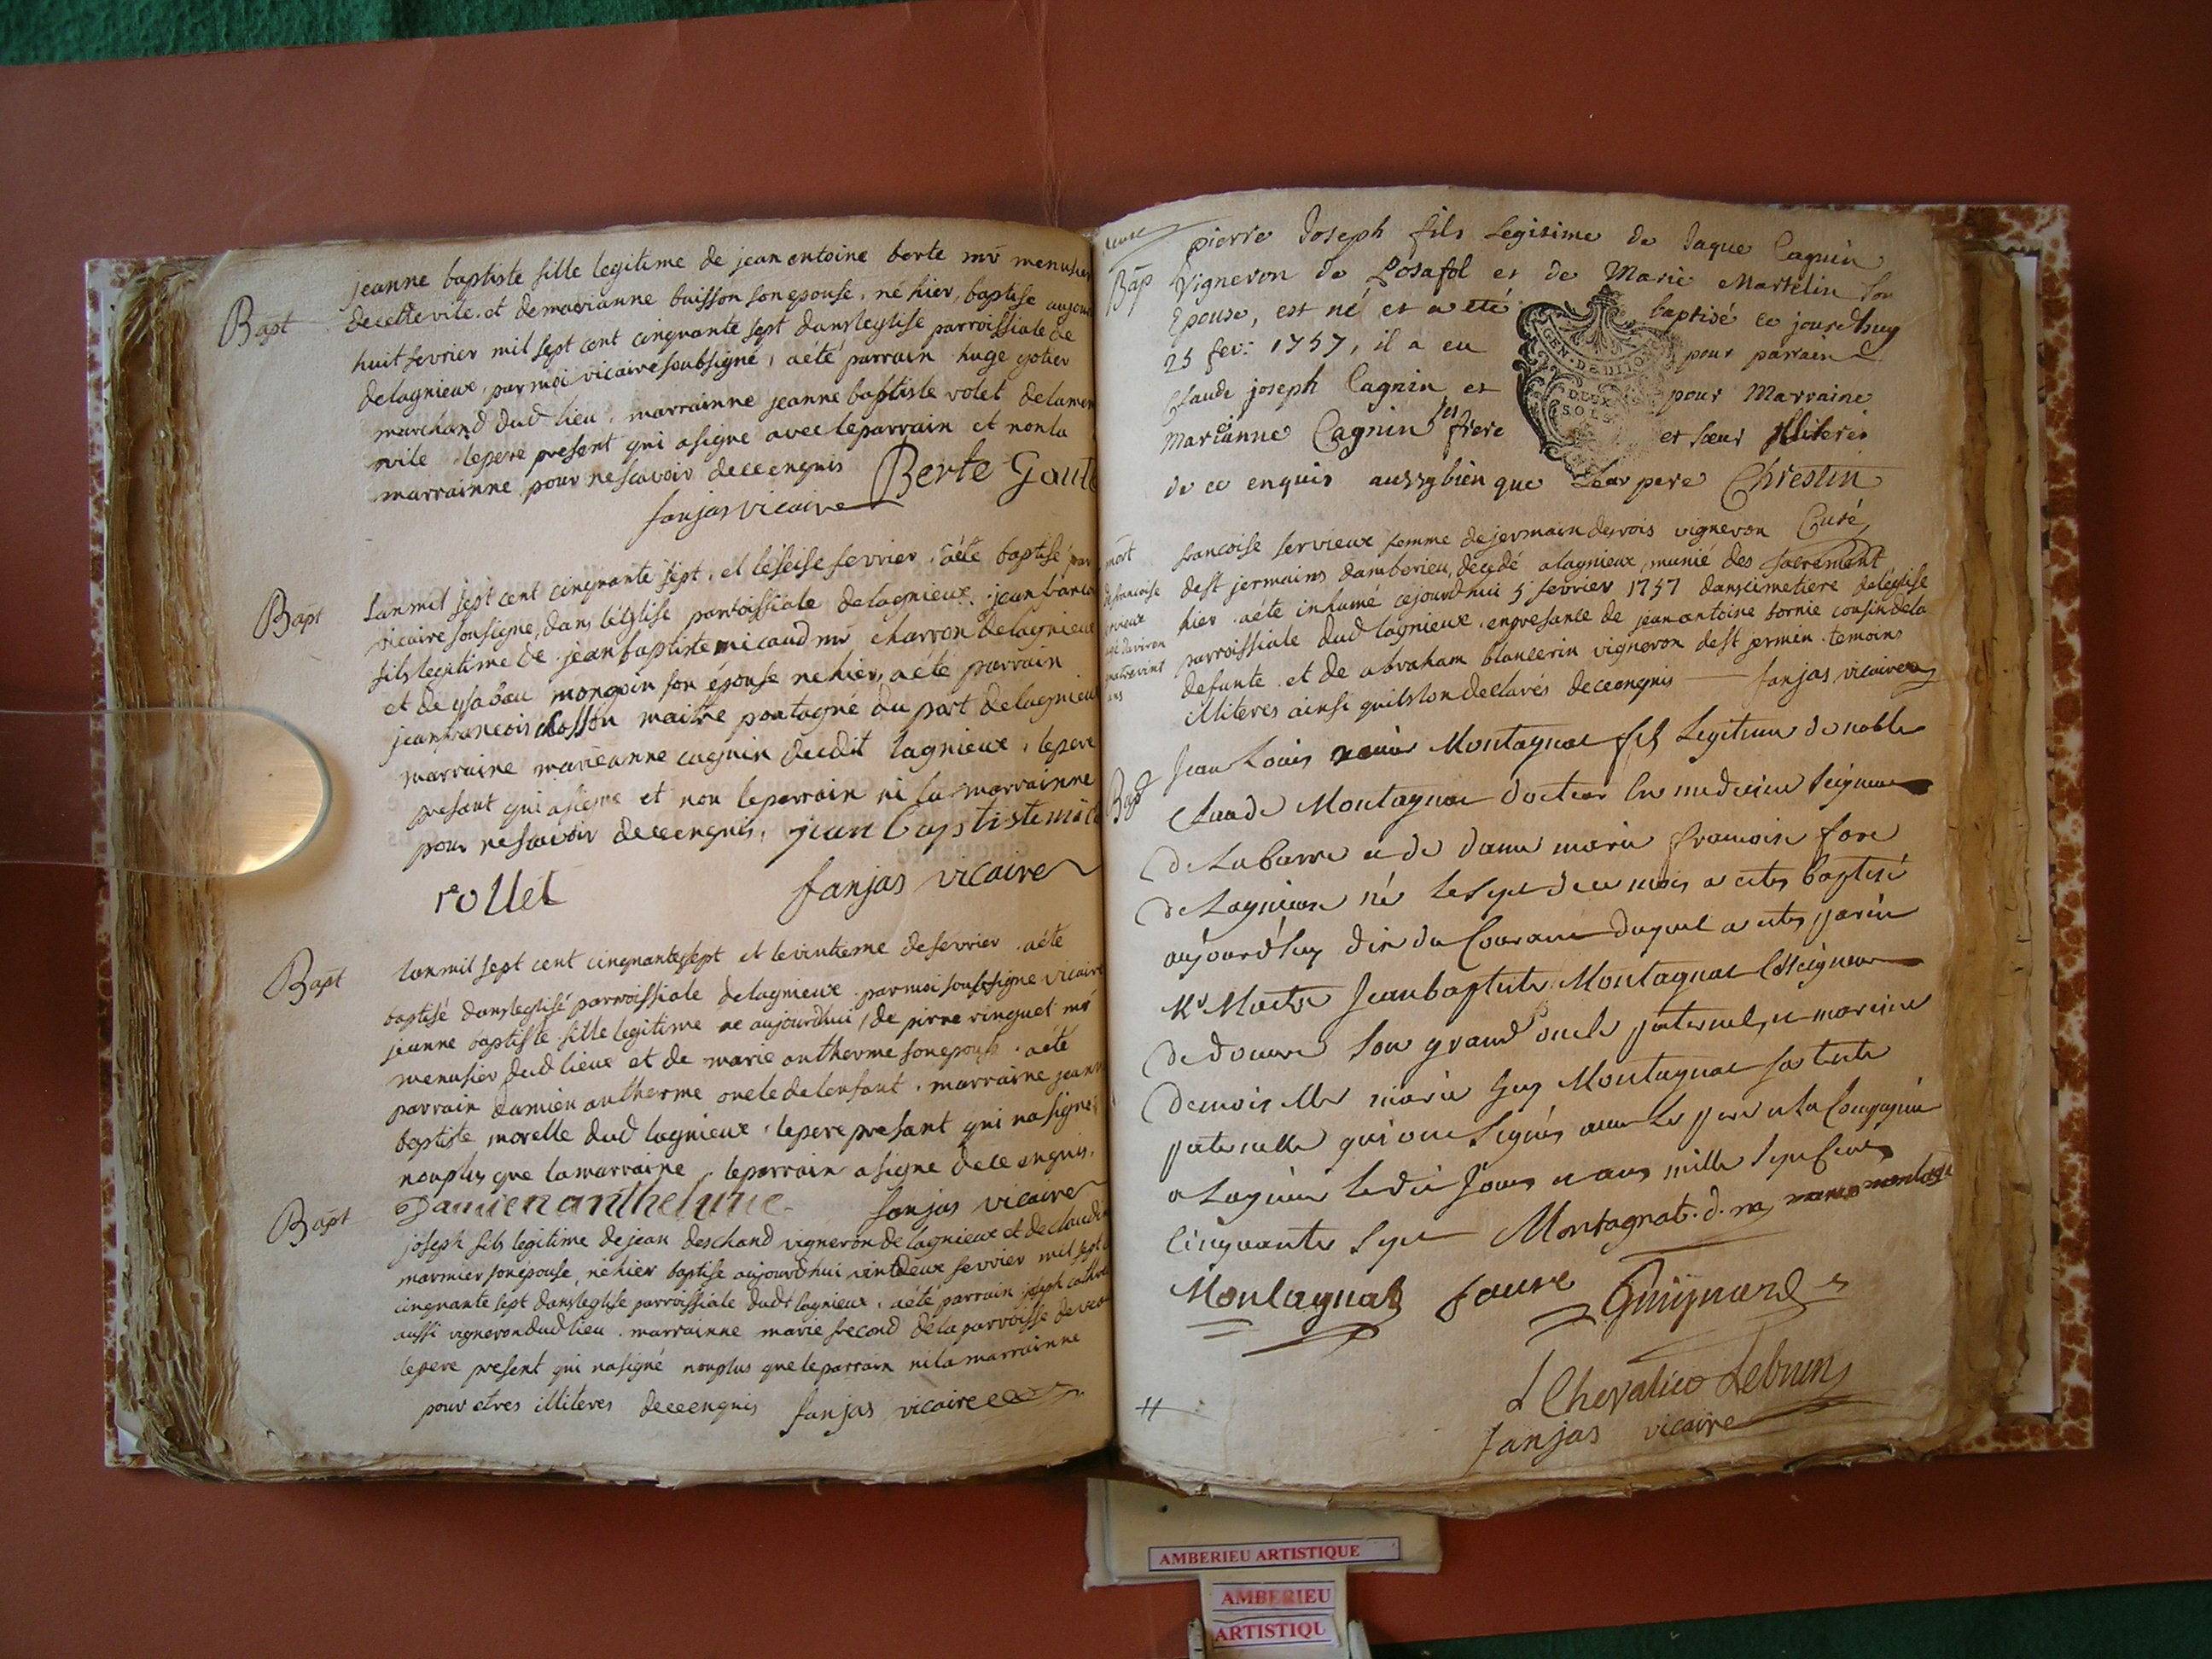 jeanne baptiste fille legitime de jean antoine berte mr menusier
Bapt
decette vile. et demarianne buisson son epouse. né hier, baptise aujour
huit fevrier mil sept cent cinquante sept dans leglise parroissiale de
delagnieux, par moi vicaire soubsigné, aété parrain huge gotier
marchand dud lieu. marrainne jeanne baptiste volet delamem
vile lepere present qui asigne avec leparrain et non la
marrainne pour nescavoir deceenquis Berte Gaut
fanjas vicaire
Bapt
Lanmil sept cent cinquante sept. et leseise fevrier. aété baptisé par
vicaire sousigne, dans leglise parroissiale delagnieux. jean franco
fils legitime de jean baptiste micaud mr charron delagnieux
et de ysabau mongoin son épouse nehier, aété parrain
jean francois chosson maitre pontagné du port delagnieux
marraine marieanne cagnin dudit lagnieux. lepere
present qui asigné et non leparrain ni la marrainne
pour nescavoir deceenquis. jean baptiste mica
rollet fanjas vicaire
Bapt
Lanmil sept cent cinquantesept et levintieme defevrier aété
baptisé dansleglisé parroissiale delagnieux. parmoi soussigne vicaire
jeanne baptiste fille legitime ne aujourdhui, de pirre ringuet mr
menusier dud lieux et de marie antherme sonepouse. aété
parrain damien antherme oncle delenfant. marraine jeann
baptiste morelle dud lagnieux. lepere present qui nasigné
nonplus que lamarraine. leparrain asigne dece enquis.
Damien anthelme fanjas vicaire
Bapt
joseph fils legitime de jean deschand vigneron de lagnieux et de claudi
marmier son épouse, nehier baptise aujourdhui vintdeux fevrier mil sept
cinquante sept dansleglise parroissiale dudt lagnieux. aété parrain joseph
aussi vigneron dud lieu. marrainne marie second dela parroisse de
lepere present qui nasigné nonplus queleparrain nila marrainne
pour etres illiteres deceenquis fanjas vicaire
pierre Joseph fils Legitime de Jaque Cagnin
Bap
Vigneron de Posafol et de Marie Martelin son
Epouse, est né et a eté baptisé ce jourdhuy
25 fev: 1757, il a eu pour parrain
Claude joseph Cagnin et pour Marraine
Marianne Cagnin ses frere et sœur illiteres
de ce enquis aussy bien que Leur pere Chrestin
Curé
GEN. DE DIJON
DEUX
SOLS
mort
defrancoise
servieux
agé daviron
quatrevint
ans
francoise servieux femme dejermain dervois vigneron
dest jermains damberieu, décédé alagnieux, munié des sacrement
hier. aété inhumé cejourdhui 5 fevrier 1757 danscimetiere deleglise
parroissiale dud lagnieux. enpresance de jean antoine bornie cousin dela
defunte. et de abraham blancerin vigneron dest jermin. temoins
illiteres ainsi quilslon declarés deceenquis fanjas vicaire
Bap
Jean Louis Montagnat fils Legitime de noble
Claude Montagnat docteur en medecine seigneur
De Labarre et de dame marie francoise fore
De Lagnieu né le sept de ce mois a etes baptisé
aujourdhuy dix du Courant duquel a etes parin
Mr Maitre Jean baptiste Montagnat Coseigneur
De douvre son grand oncle paternel, et marine
Demoiselle marie Guy Montagnat sa tente
paternelle qui ont signés avec Le pere et La Compagnie
a Lagnieu Ledit Jour et ans mille sept cents
Cinquante sept Montagnat. d. m.
Montagnat faure Guiguard
L Chevalier Lebrun
fanjas vicaire
AMBERIEU ARTISTIQUE
AMBERIEU
ARTISTIQU